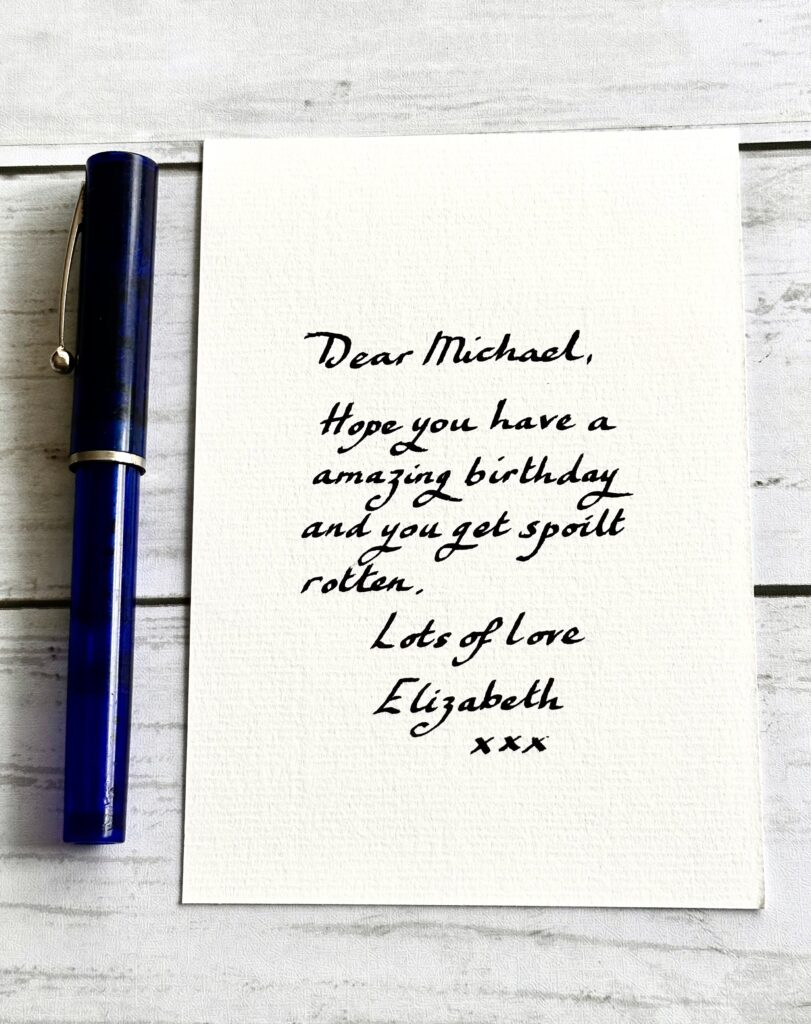 Dear Michael,
Hope you have a
amazing birthday
and you get spoilt
rotten.
Lots of love
Elizabeth
xxx